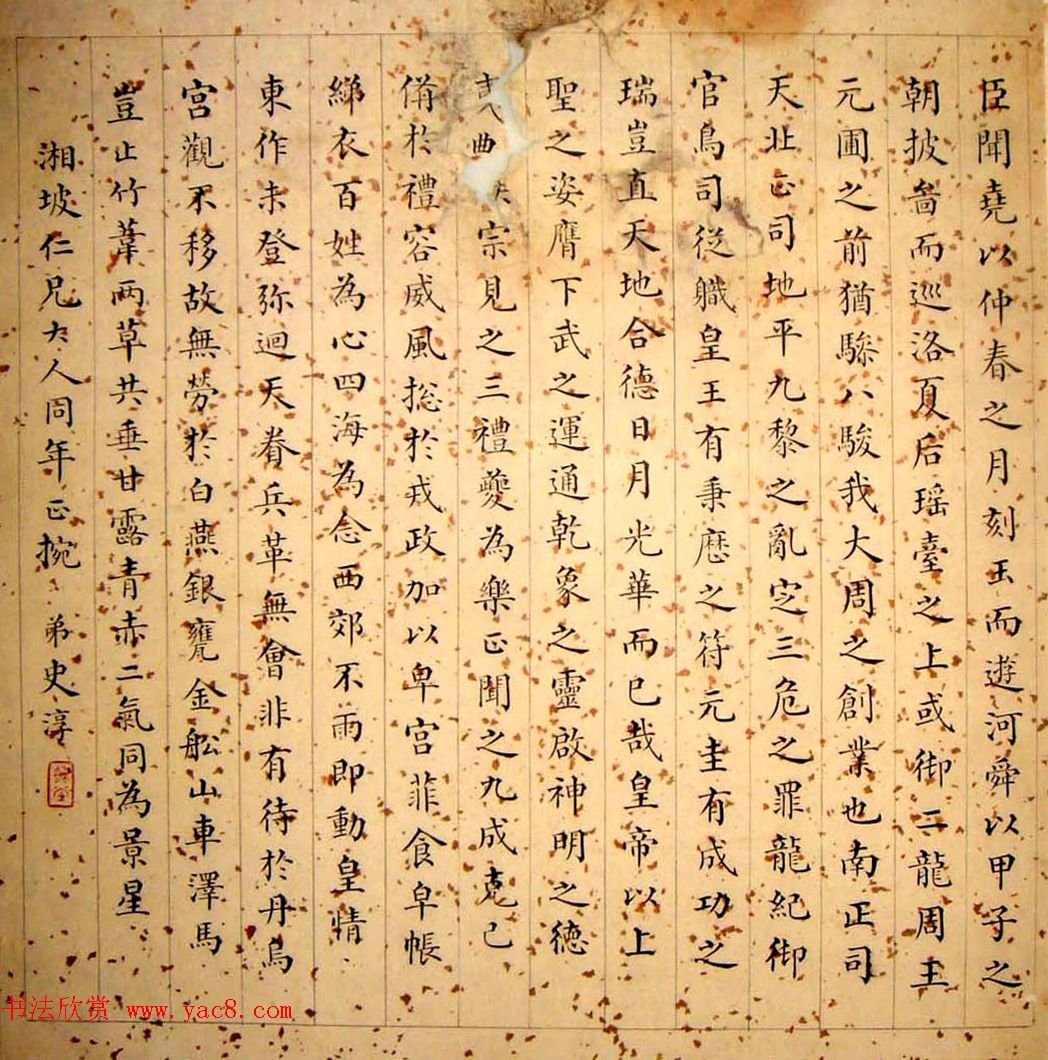 臣聞堯以仲春之月刻玉而遊河舜以甲子之
朝披啚而巡洛夏后瑶臺之上或御二龍周王
元圃之前猶驂八駿我大周之創業也南正司
天北正司地平九黎之亂定三危之罪龍紀御
官鳥司從職皇王有秉歷之符元圭有成功之
瑞豈直天地合德日月光華而已哉皇帝以上
聖之姿膺下武之運通乾象之靈啟神明之德
曲宗見之三禮夔為樂正聞之九成克己
備於禮容威風捴於戎政加以卑宮菲食皁帳
綈衣百姓為心四海為念西郊不雨即動皇情
東作未登弥迴天眷兵革無會非有待於丹烏
宮觀不移故無勞於白燕銀甕金舩山車澤馬
豈止竹葦兩草共垂甘露青赤二氣同為景星
湘坡仁兄大人同年正捥 弟史淳
书法欣赏 www.yac8.com